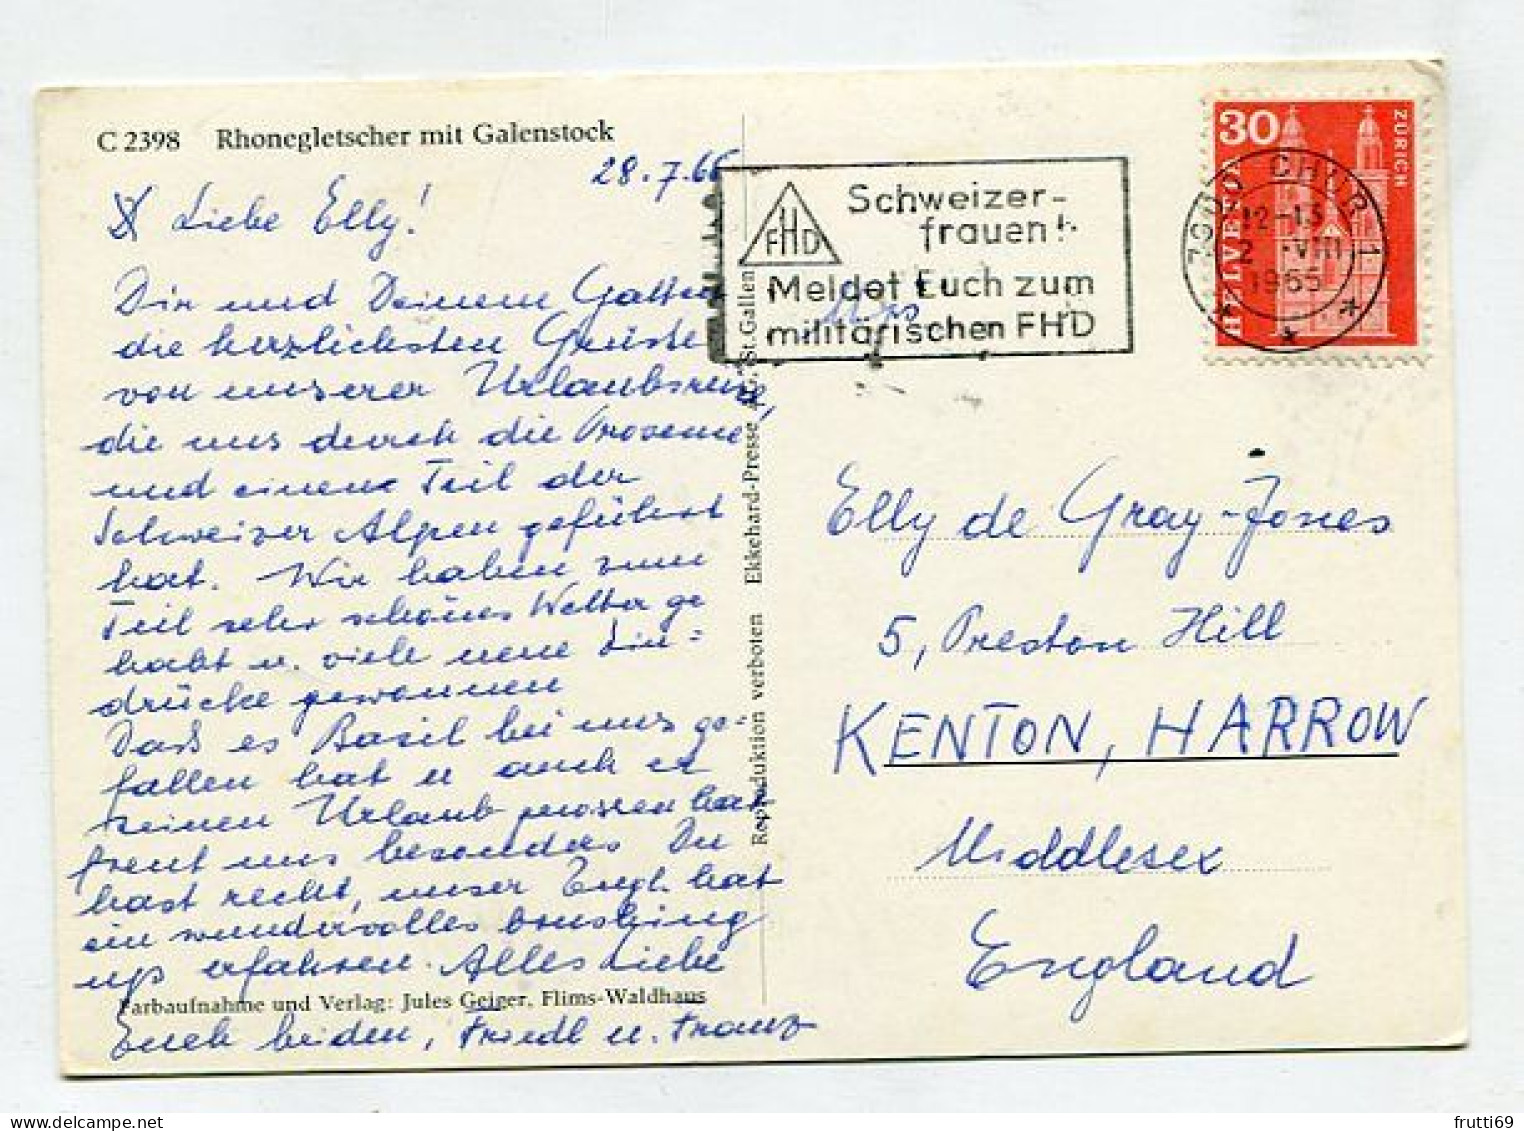 C 2398 Rhonegletscher mit Galenstock
28.7.66
Liebe Elly!
Dir und Deinem Gatten
die herzlichsten Grüße
von unserer Urlaubsreise,
die uns durch die Provence
und einene Teil der
Schweizer Alpen geführt
hat. Wir haben zum
Teil sehr schönes Wetter ge
habt u. viele neue Ein=
drücke gewonnen
Daß es Basil bei uns ge-
fallen hat u auch er
seinen Urlaub genossen hat
freut uns besonders Du
hast recht, unser Engl. hat
ein wundervolles brushing
up erfahren. Alles Liebe
Farbaufnahme und Verlag: Jules Geiger, Flims-Waldhaus
Euch beiden, Friedl u. Franz
Reproduktion verboten Ekkehard-Presse AG, St. Gallen
FHD
Schweizer-
frauen!
Meldet Euch zum
militärischen FHD
30
HELVETIA
ZÜRICH
7000 CHUR 1
12-13
2 VIII
1965
Elly de Gray-Jones
5, Preston Hill
KENTON, HARROW
Middlesex
England
frutti69